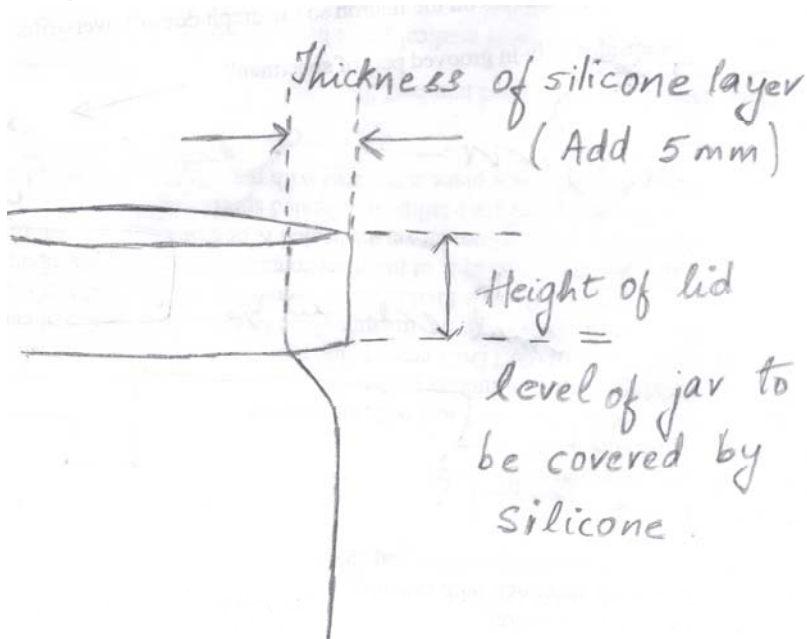 Thickness of silicone layer
(Add 5 mm)
Height of lid
=
level of jar to
be covered by
silicone.